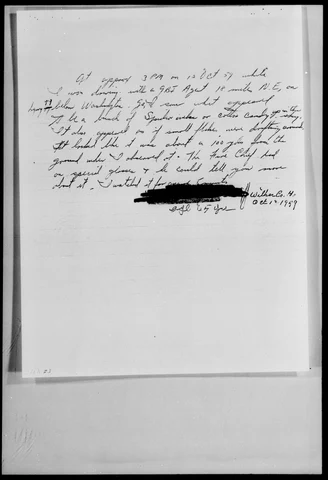 At approx 3 PM on 12 Oct 59 while
I was driving with a GBI Agent 10 miles N.E. on
Hwy below Washington Ga I saw what appeared
to be a bunch of Spider webs or cotton candy up in the sky.
It also appeared as if small flakes were dropping around
It looked like it was about a 100 yds from the
ground when I observed it. The Fire Chief had
on special glasses & he could tell you more
about it. I watched it for
Wilkes Co. Ga.
Oct 12 1959